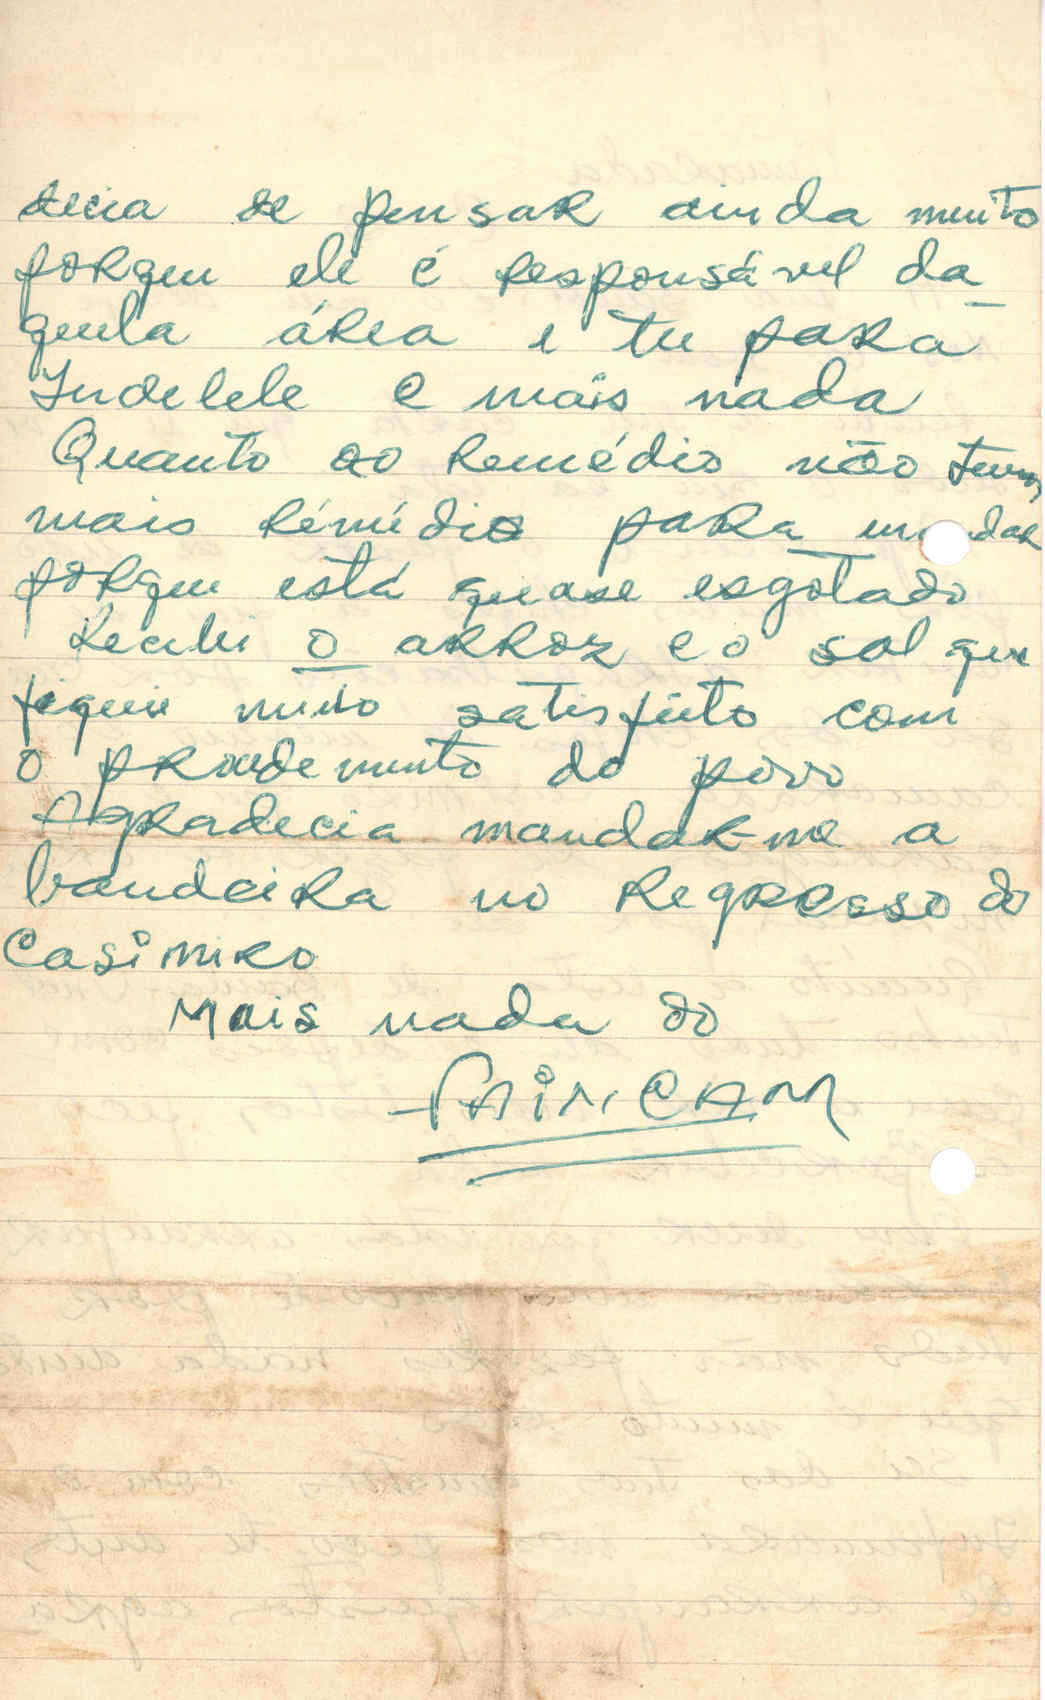 decia de pensar ainda muito
porque ele é responsável da_
quela área e tu para
Indelele e mais nada
Quanto ao Remédio não temos
mais Rémédio para mandar
porque está quase esgotado
Recebi o arroz e o sal que
fiquei muito satisfeito com
o procedemento do povo
Agradecia mandar-me a
bandeira no Regresso do
Casimiro
Mais nada do